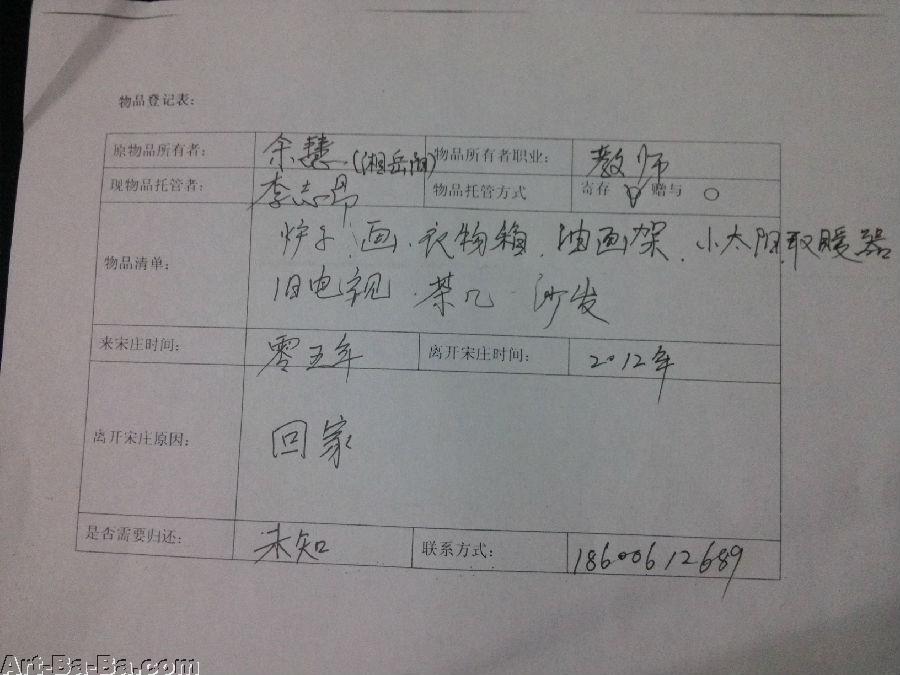 物品登记表：
原物品所有者： 余慧（湘岳阳） 物品所有者职业： 教师
现物品托管者： 李志 物品托管方式 寄存 赠与
物品清单： 炉子、画、衣物箱、油画架、小太阳取暖器
旧电视、茶几、沙发
来宋庄时间： 零五年 离开宋庄时间： 2012年
离开宋庄原因： 回家
是否需要归还： 未知 联系方式： 18600612689
Art-Ba-Ba.com